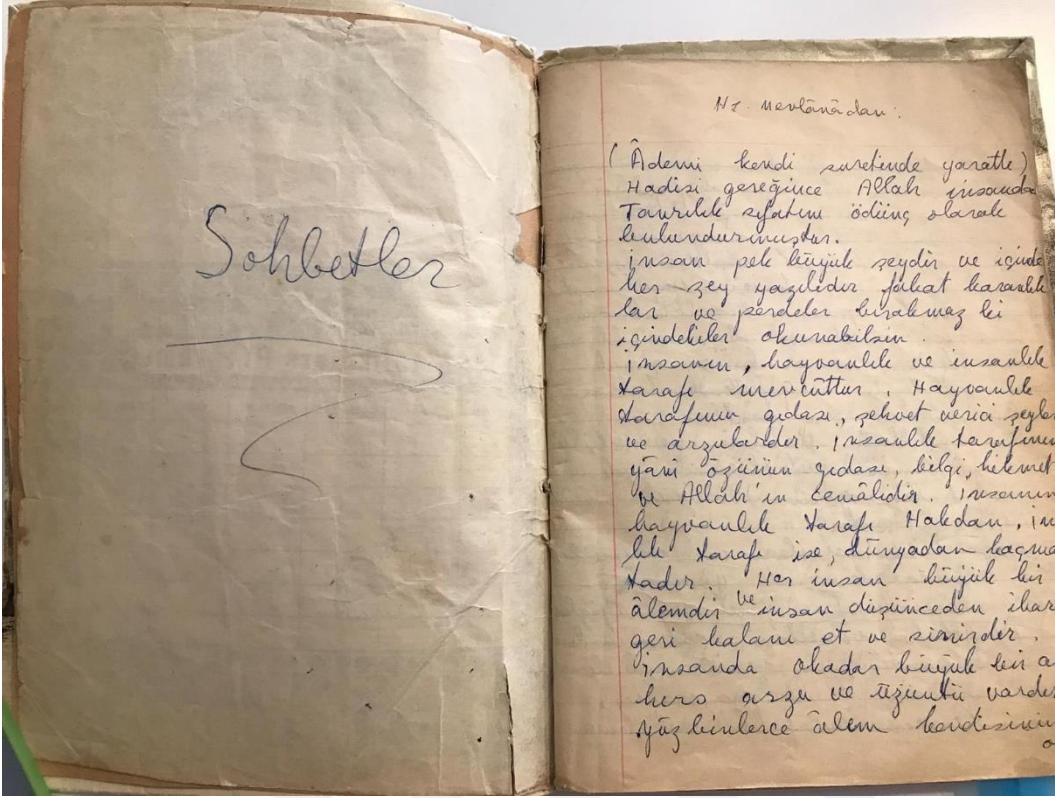 Sohbetler
Hz. Mevlânâdan:
(Âdemi kendi suretinde yarattı)
Hadisi gereğince Allah insanda
Tanrılık sıfatını ödünç olarak
bulundurmuştur.
insan pek büyük şeydir ve içinde
her şey yazılıdır fakat karanlık
lar ve perdeler bırakmaz ki
içindekiler okunabilsin.
insanın, hayvanlık ve insanlık
tarafı mevcûttur. Hayvanlık
tarafının gıdası, şehvet verici şeyler
ve arzulardır. insanlık tarafının
yâni özünün gıdası, bilgi, hikmet
ve Allah'ın cemâlidir. insanın
hayvanlık tarafı Hakdan, in
lık tarafı ise, dünyadan kaçma
tadır. Her insan büyük bir
âlemdir ve insan düşünceden ibar
geri kalanı et ve sinirdir.
insanda okadar büyük bir a
hırs arzu ve üzüntü vardır
yüz binlerce âlem kendisinin